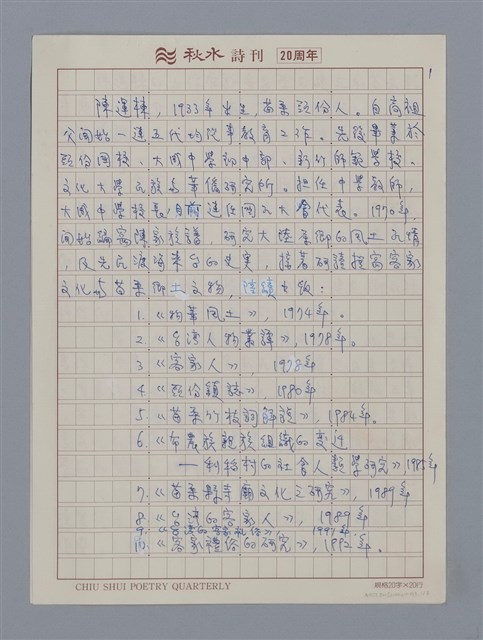 秋水詩刊 20周年
1
陳運棟，1933年出生，苗栗頭份人。自高祖
父開始一連五代均從事教育工作。先後畢業於
頭份國校、大成中學初中部、新竹師範學校、
文化大學民族與華僑研究所。擔任中學教師，
大成中學校長，目前連任國民大會代表。1970年
開始編寫陳家族譜，研究大陸原鄉的風土民情
，及先民渡海來台的史實，接著研讀撰寫客家
文化與苗栗鄉土文物，陸續出版：
1.《物華風土》，1974年。
2.《台灣人物叢譚》，1978年。
3.《客家人》，1978年
4.《頭份鎮誌》，1980年
5.《苗栗竹枝詞解說》，1984年。
6.《布農族親族組織的變遷
—利稻村的社會人類學研究》1985年
7.《苗栗縣寺廟文化之研究》，1989年
8.《台灣的客家人》，1989年
9.《台灣的客家禮俗》，1991年
10.《客家禮俗的研究》，1992年。
CHIU SHUI POETRY QUARTERLY